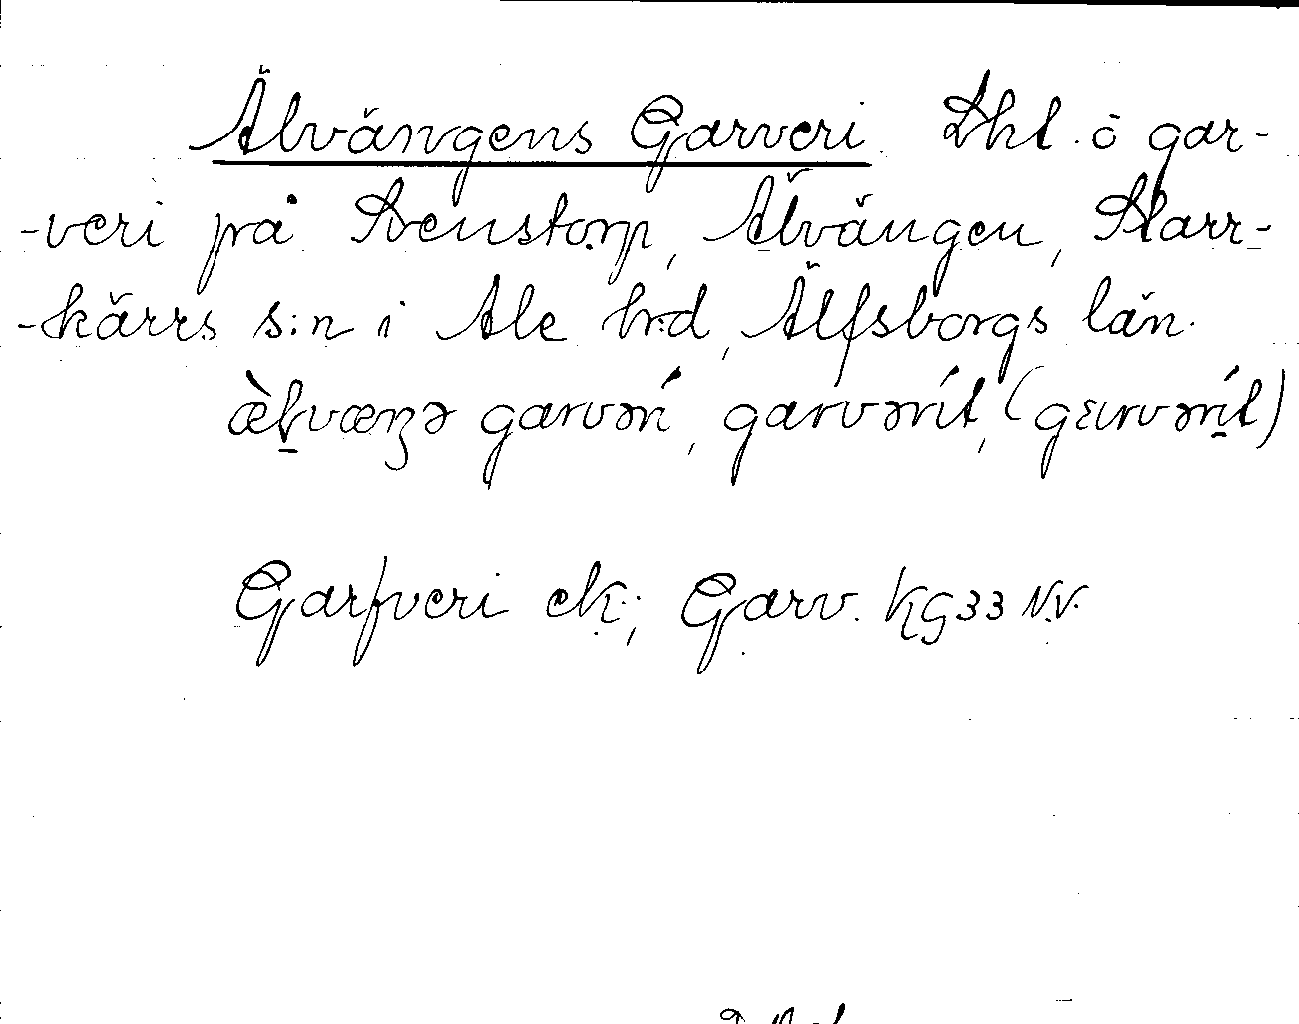 Älvängens Garveri Lht. o gar-
-veri på Svenstorp, Älvängen, Starr-
-kärrs s:n i Ale hrd, Älfsborgs län.
æ̀ḻvæŋə garvərí, garvərít, (gɛarvərít)
Garfveri ek.; Garv. KG33 NV.